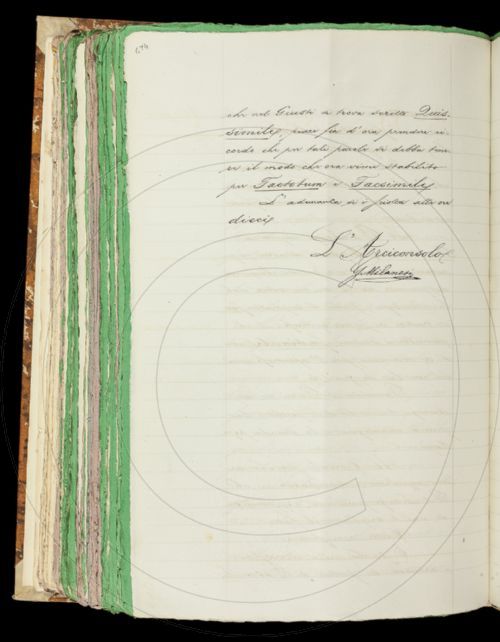 674
che nel Giusti si trova scritto Quis-
simile, piace fin d'ora prendere ri-
cordo che per tale parola si debba tene-
re il modo che ora viene stabilito
per Factotum e Facsimile.
L'adunanza si è sciolta alle ore
dieci.
L'Arciconsolo
G Milanesi